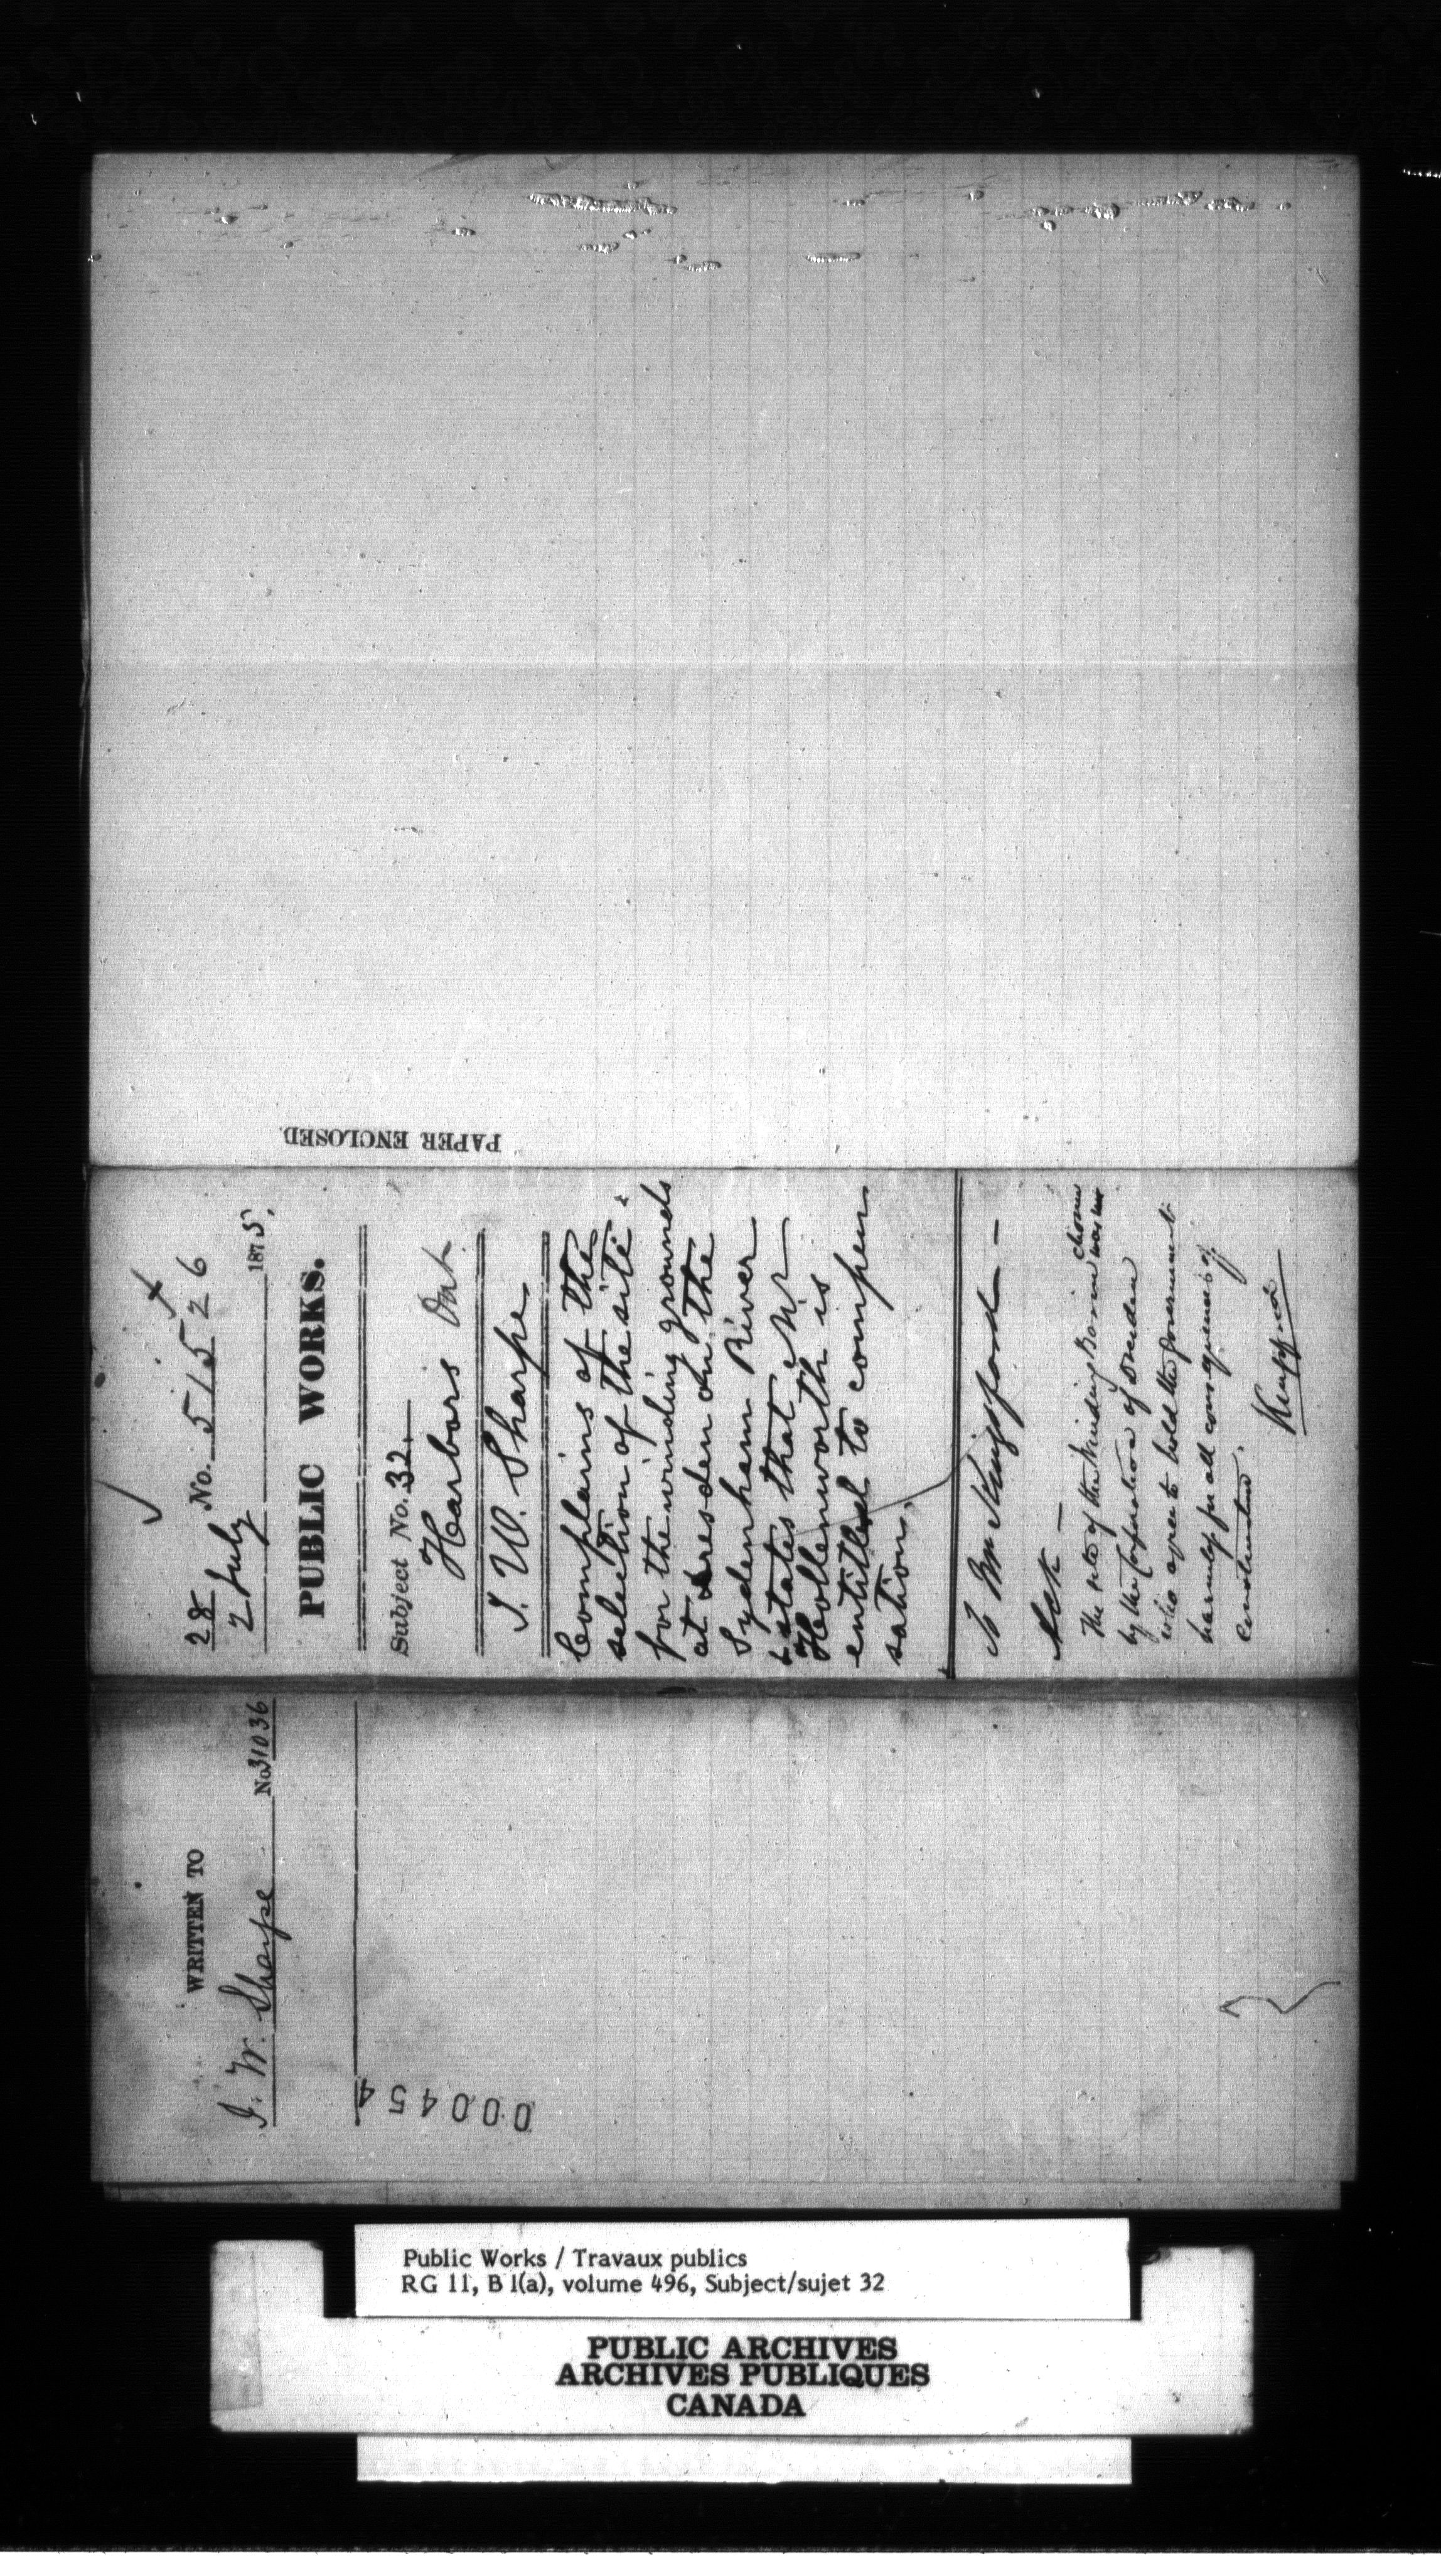 PAPER ENCLOSED.
28 No. 51526
2 July 1875.
PUBLIC WORKS.
Subject No. 32.
Harbors Ont
I. W. Sharpe
Complains of the
selection of the site
for the winding grounds
at Dresden on the
Sydenham River
& states that Mr
Hollenworth is
entitled to compen
sation.
To Mr Kingsford
Ack
The site of the Winding Basin chosen was
by the Corporation of Dresden
who agree to hold the Government
harmless for all consequences of
construction.
Kingsford
WRITTEN TO
I. W. Sharpe No. 31036
000454
Public Works / Travaux publics
RG 11, B 1(a), volume 496, Subject/sujet 32
PUBLIC ARCHIVES
ARCHIVES PUBLIQUES
CANADA